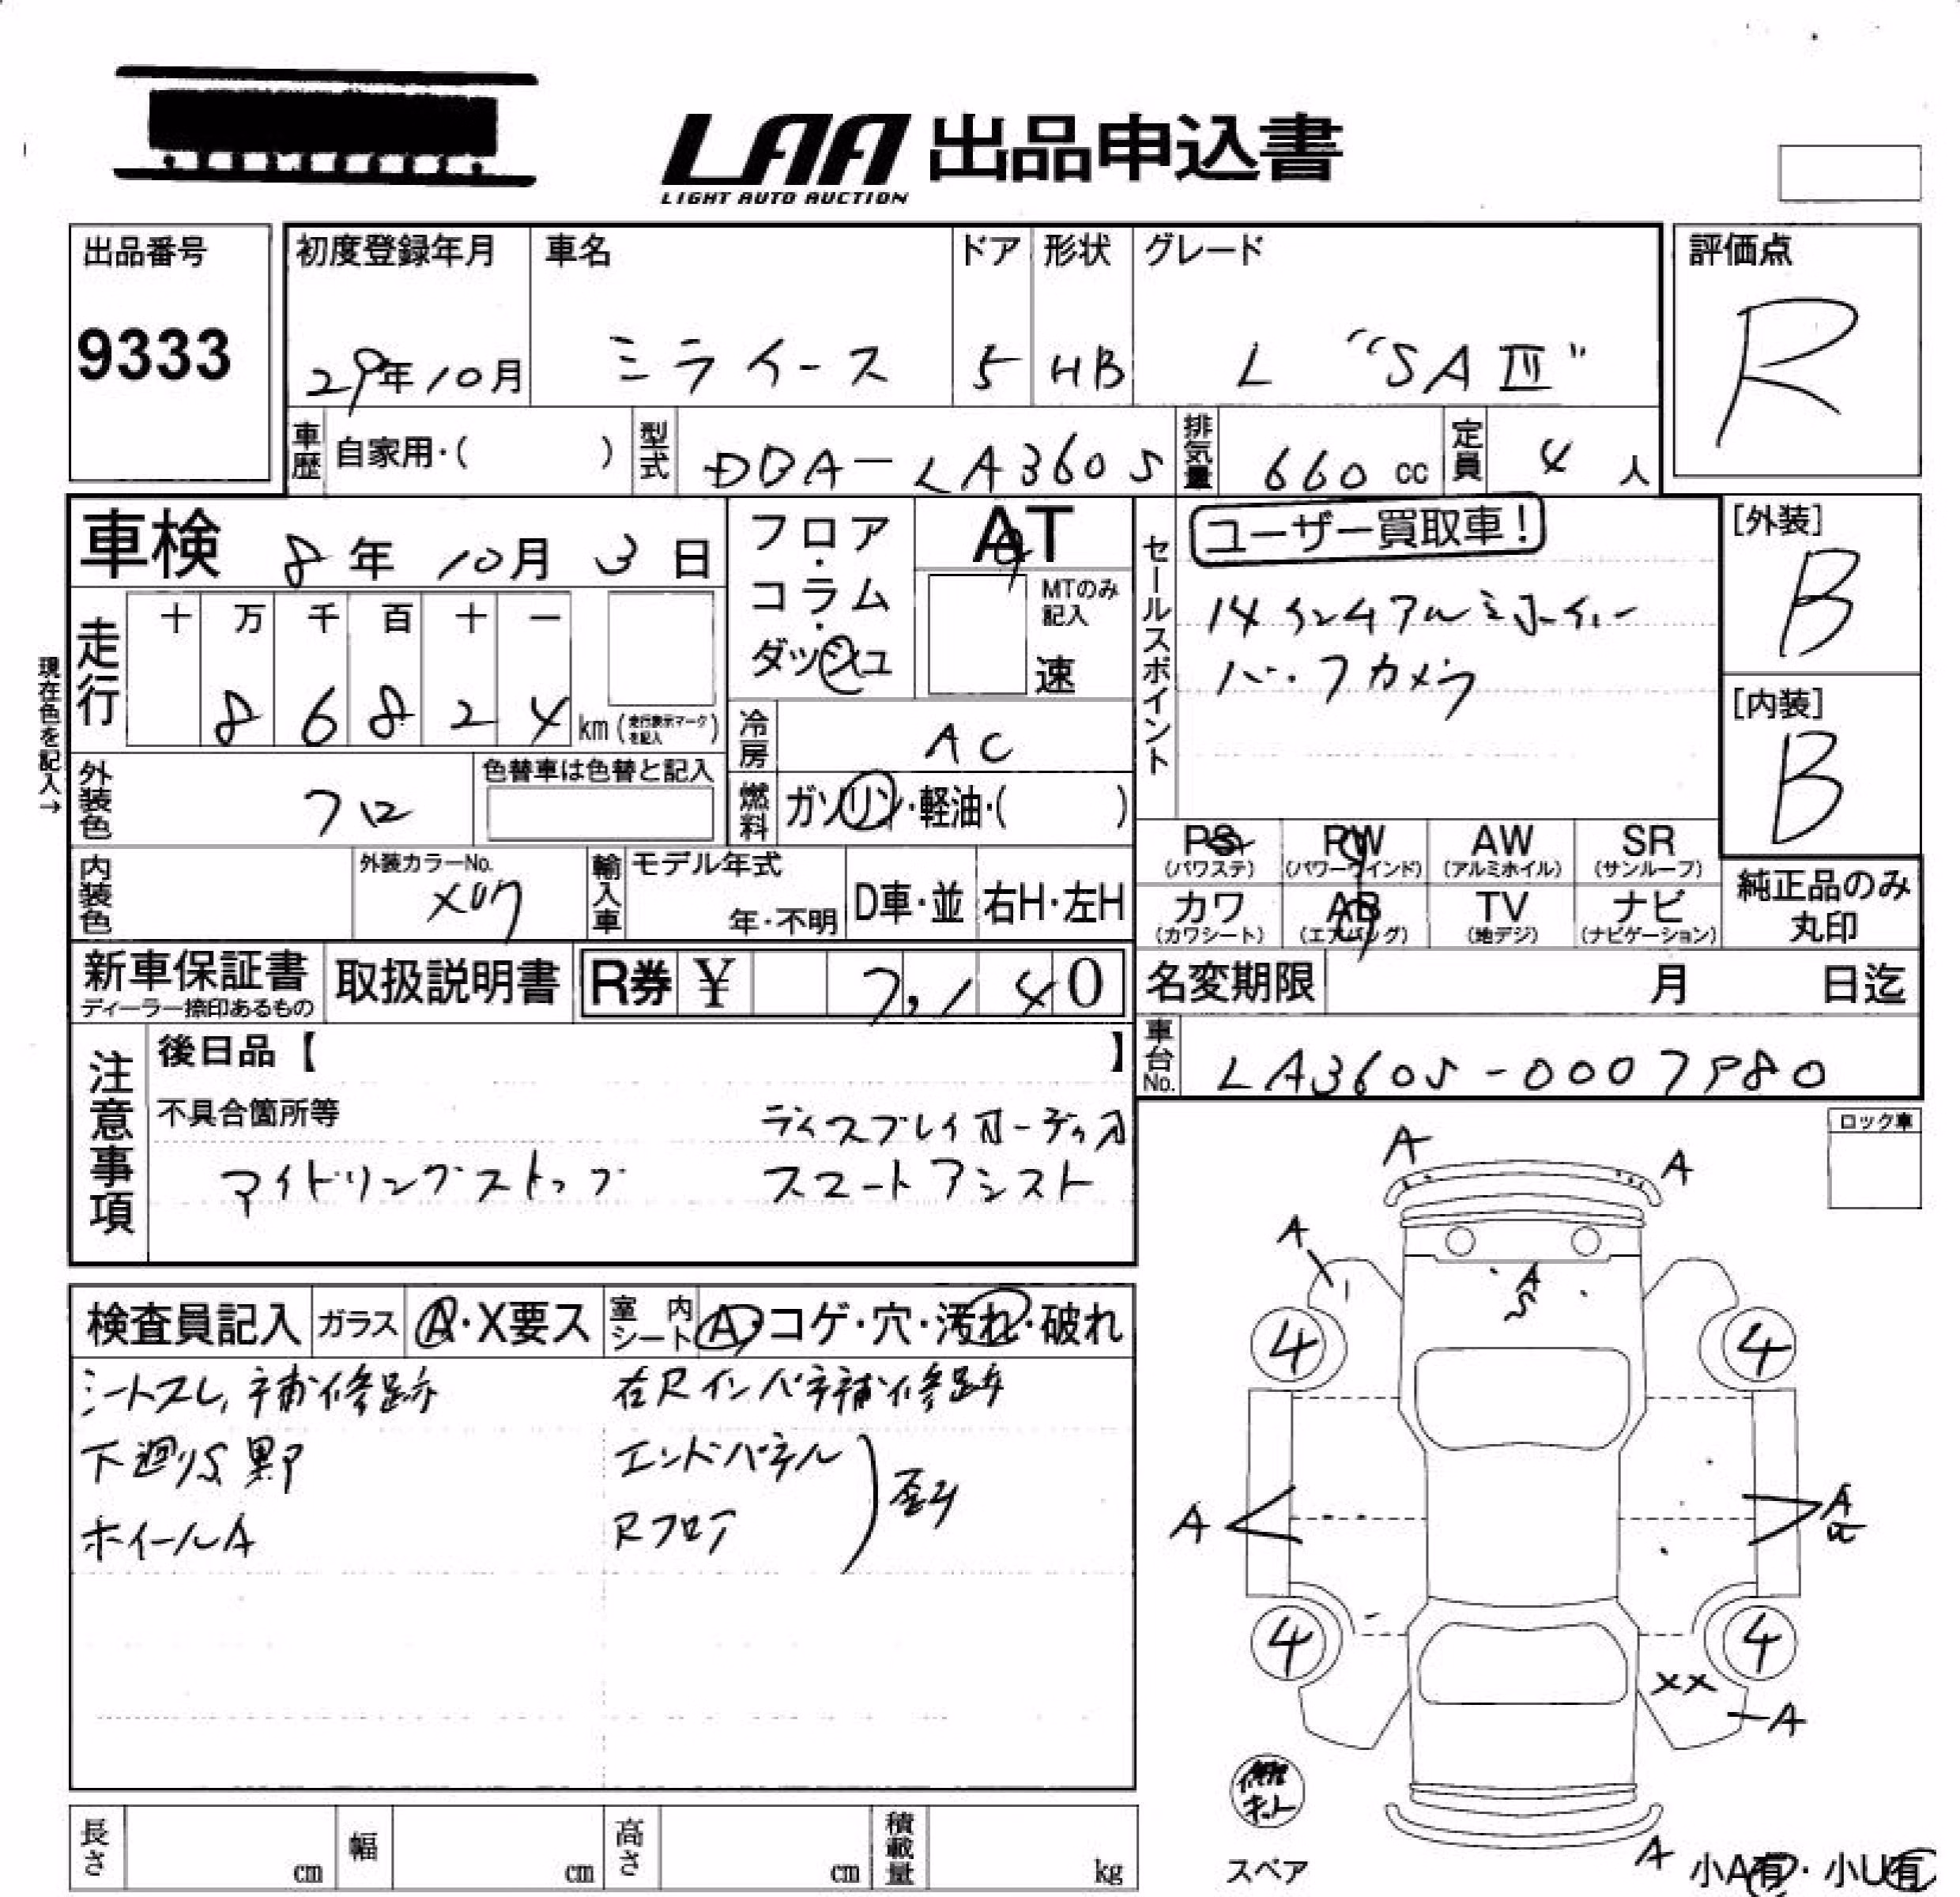 LAA 出品申込書
LIGHT AUTO AUCTION
出品番号
9333
初度登録年月
29年10月
車名
ミライース
ドア
5
形状
HB
グレード
L "SAⅢ"
評価点
R
車歴 自家用・( )
型式 DBA-LA360S
排気量 660 cc
定員 4 人
車検 8年10月3日
フロア・コラム・ダッシュ
AT
MTのみ記入
速
セールスポイント
ユーザー買取車!
14インチアルミホイール
バックカメラ
[外装]
B
[内装]
B
現在色を記入→
走行
十 万 千 百 十 一
8 6 8 2 4 km (走行表示マークを記入)
冷房 AC
燃料 ガソリン・軽油・( )
外装色 クロ
色替車は色替と記入
内装色
外装カラーNo.
X07
輸入車
モデル年式
年・不明
D車・並
右H・左H
PS (パワステ)
PW (パワーウインド)
AW (アルミホイル)
SR (サンルーフ)
カワ (カワシート)
AB (エアバッグ)
TV (地デジ)
ナビ (ナビゲーション)
純正品のみ丸印
新車保証書
ディーラー捺印あるもの
取扱説明書
R券 ¥ 7,140
名変期限 月 日迄
車台No. LA360S-0007980
注意事項
後日品【 】
不具合箇所等
ディスプレイオーディオ
アイドリングストップ スマートアシスト
ロック車
検査員記入
ガラス A・X要ス
室内シート A・コゲ・穴・汚れ・破れ
シートスレ,補修跡
右Rインパネ補修跡
下廻りS,黒
エンドパネル
Rフロア
歪み
ホイールA
A
A
A
A
S
4
4
A
A
4
4
XX
A
修理キット
スペア
A
小A有・小U有
長さ cm
幅 cm
高さ cm
積載量 kg